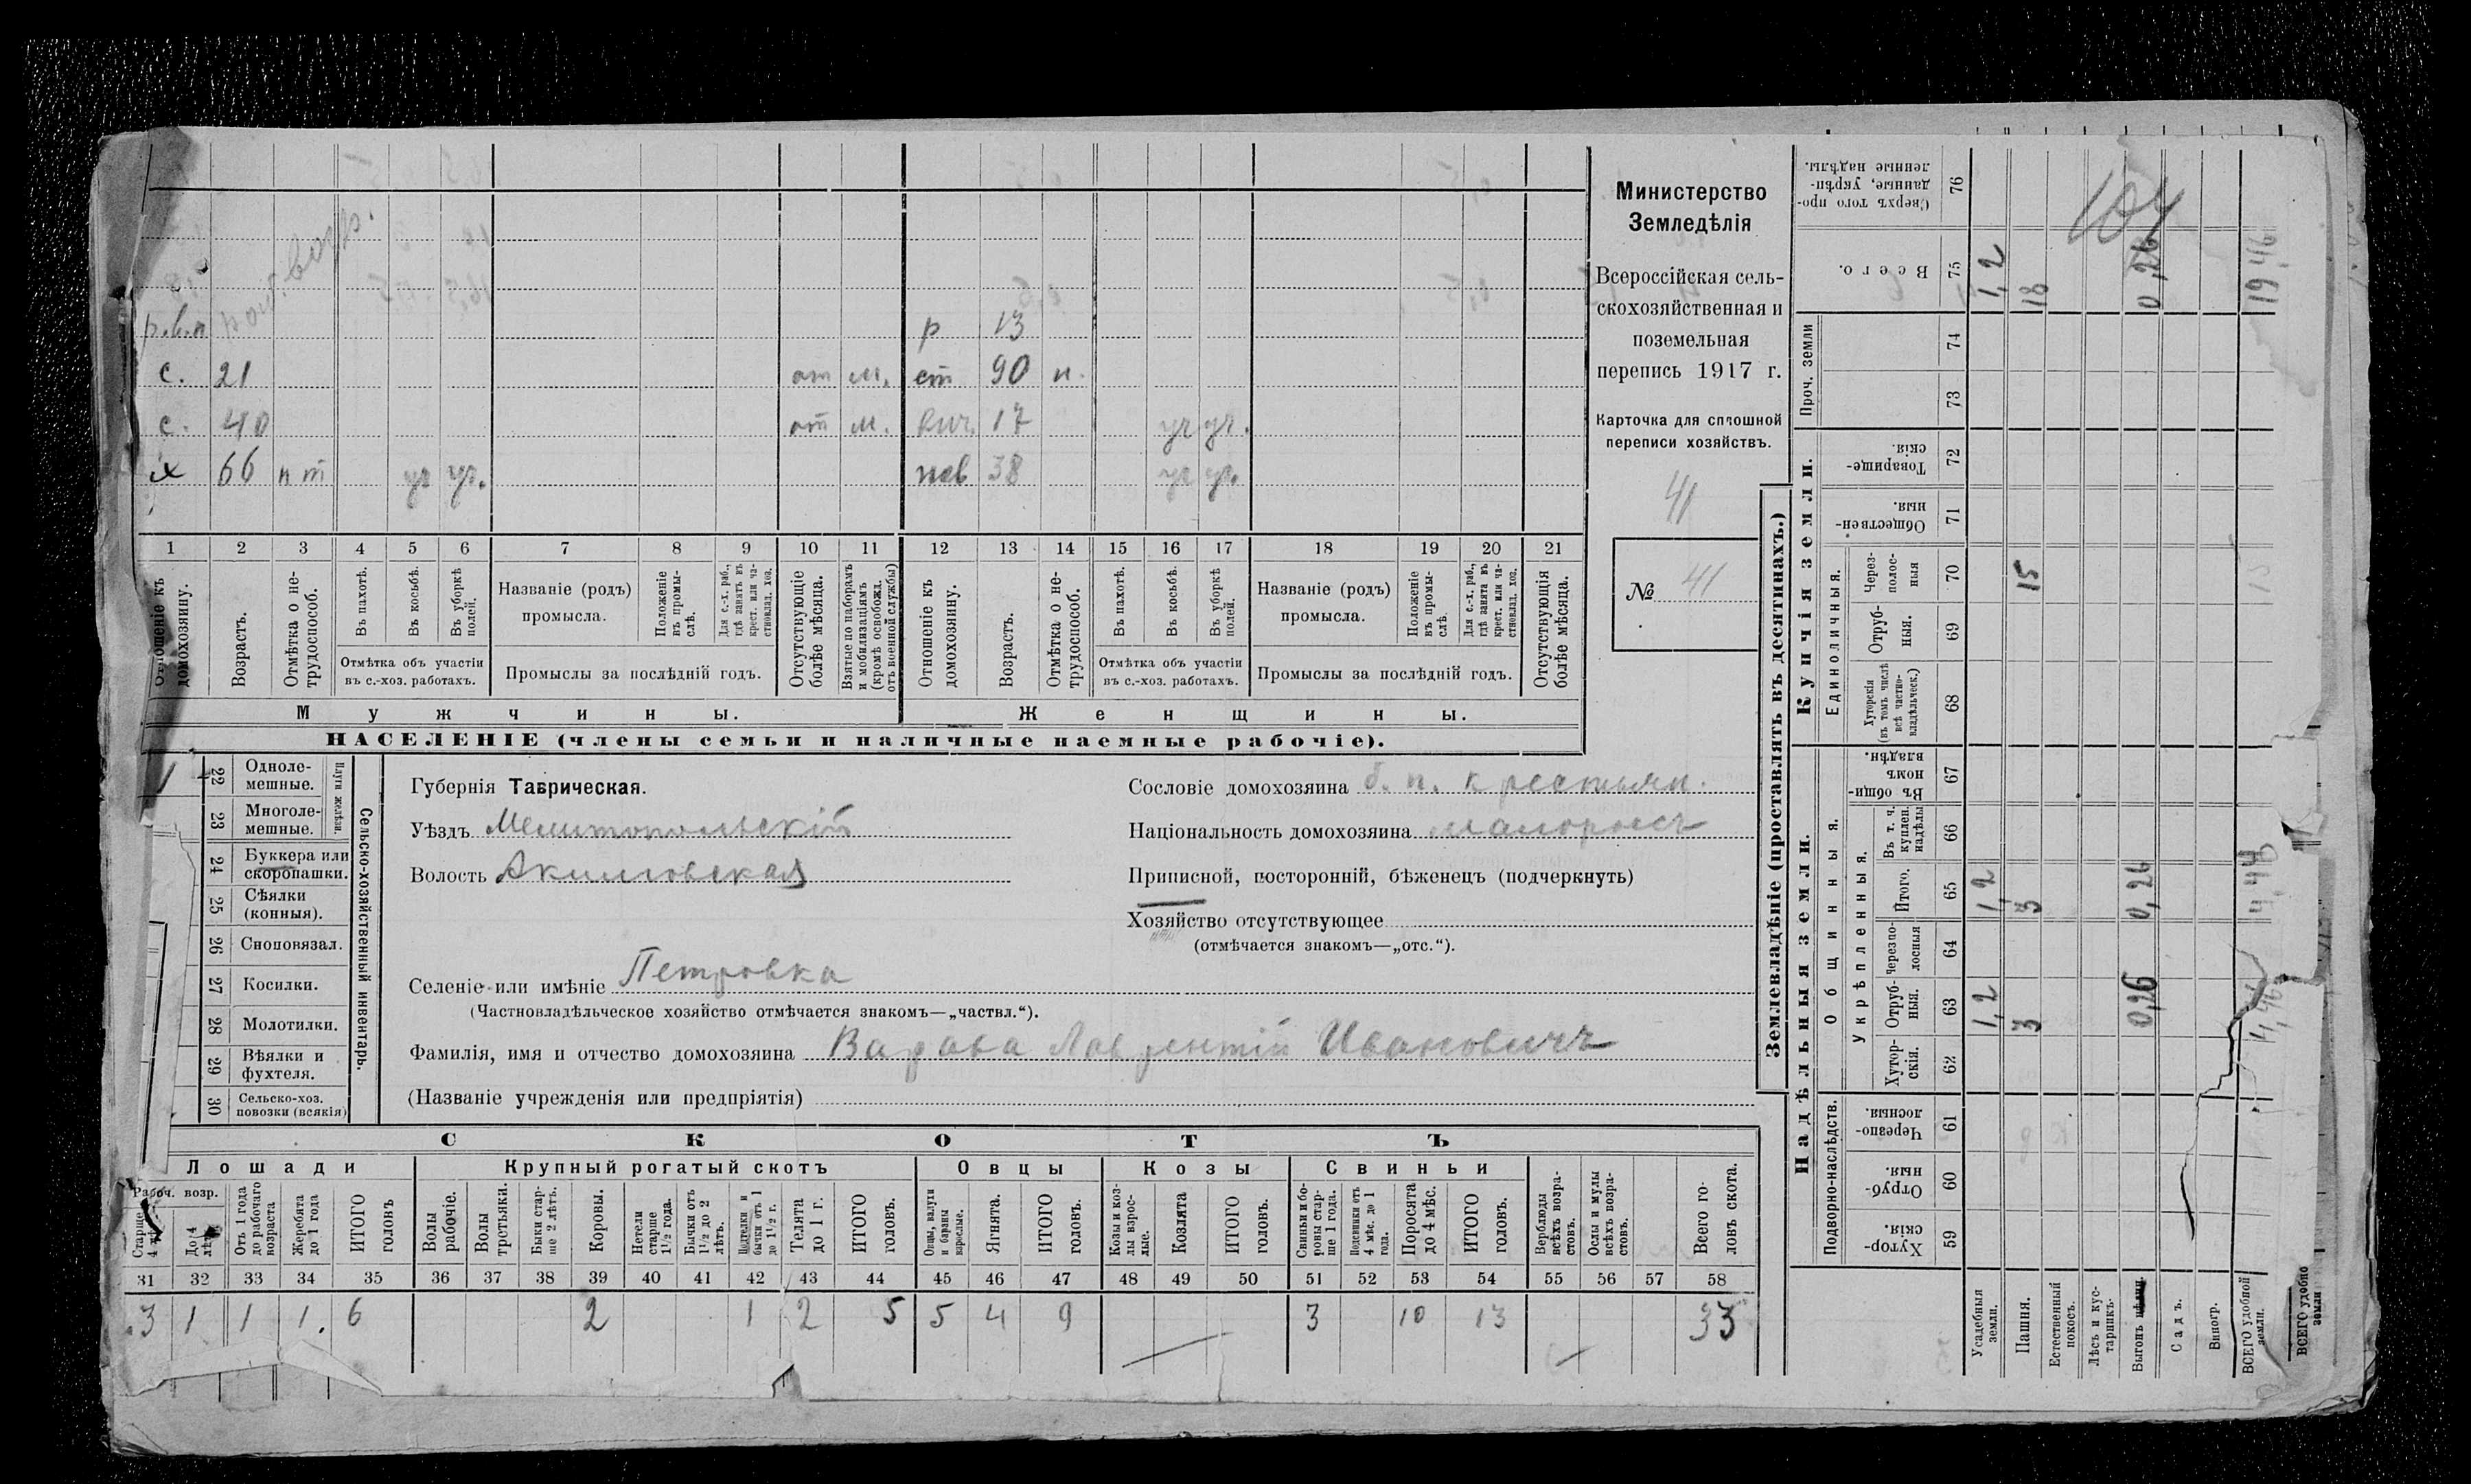 р.в.п раб. возр. р 13
с. 21 от м. ст 90 н.
с. 40 от м. внч. 17 уч уч.
х 66 п т уч уч. нев 38 уч уч.
1 2 3 4 5 6 7 8 9 10 11 12 13 14 15 16 17 18 19 20 21
Отношеніе къ домохозяину.
Возрастъ.
Отмѣтка о нетрудоспособ.
Въ пахотѣ.
Въ косьбѣ.
Въ уборкѣ полей.
Отмѣтка объ участіи
въ с.-хоз. работахъ.
Названіе (родъ)
промысла.
Положеніе въ промыслѣ.
Для с.-х. раб., гдѣ занятъ въ крест. или частновлад. хоз.
Промыслы за послѣдній годъ.
Отсутствующіе болѣе мѣсяца.
Взятые по наборамъ и мобилизаціямъ (кромѣ освобожд. отъ военной службы)
Отношеніе къ домохозяину.
Возрастъ.
Отмѣтка о нетрудоспособ.
Въ пахотѣ.
Въ косьбѣ.
Въ уборкѣ полей.
Отмѣтка объ участіи
въ с.-хоз. работахъ.
Названіе (родъ)
промысла.
Положеніе въ промыслѣ
Для с.-х. раб., гдѣ занята въ крест. или частновлад. хоз.
Промыслы за послѣдній годъ.
Отсутствующія болѣе мѣсяца.
Мужчины.
Женщины.
НАСЕЛЕНІЕ (члены семьи и наличные наемные рабочіе).
Министерство
Земледѣлія
Всероссійская сель-
скохозяйственная и
поземельная
перепись 1917 г.
Карточка для сплошной
переписи хозяйствъ.
41
№ 41
1 22 Однолемешные.
23 Многолемешные.
Плуги желѣзн.
24 Буккера или скоропашки.
25 Сѣялки (конныя).
26 Сноповязал.
27 Косилки.
28 Молотилки.
29 Вѣялки и фухтеля.
30 Сельско-хоз. повозки (всякія)
Сельско-хозяйственный инвентарь.
Губернія Таврическая.
Уѣздъ Мелитопольскій
Волость Акимовская
Сословіе домохозяина б. п. крестьян.
Національность домохозяина малороссъ
Приписной, посторонній, бѣженецъ (подчеркнуть)
Хозяйство отсутствующее
(отмѣчается знакомъ—„отс.“).
Селеніе или имѣніе Петровка
(Частновладѣльческое хозяйство отмѣчается знакомъ—„частвл.“).
Фамилія, имя и отчество домохозяина Варава Лаврентій Ивановичъ
(Названіе учрежденія или предпріятія)
СКОТЪ
Лошади Крупный рогатый скотъ Овцы Козы Свиньи
Рабоч. возр.
Старше 4 лѣтъ
До 4 лѣтъ
Отъ 1 года до рабочаго возраста
Жеребята до 1 года
ИТОГО головъ
Волы рабочіе.
Волы третьяки.
Быки старше 2 лѣтъ.
Коровы.
Нетели старше 1½ года.
Бычки отъ 1½ до 2 лѣтъ.
Подтелки и бычки отъ 1 до 1½ г.
Телята до 1 г.
ИТОГО головъ.
Овцы, валухи и бараны взрослые.
Ягнята.
ИТОГО головъ.
Козы и козлы взрослые.
Козлята
ИТОГО головъ.
Свиньи и боровы старше 1 года.
Подсвинки отъ 4 мѣс. до 1 года.
Поросята до 4 мѣс.
ИТОГО головъ.
Верблюды всѣхъ возрастовъ.
Ослы и мулы всѣхъ возрастовъ.
Всего головъ скота.
31 32 33 34 35 36 37 38 39 40 41 42 43 44 45 46 47 48 49 50 51 52 53 54 55 56 57 58
3 1 1 1. 6 2 1 2 5 5 4 9 3 10 13 33
Землевладѣніе (проставлять въ десятинахъ.)
Купчія земли.
Надѣльныя земли.
Сверхъ того проданные, укрѣпленные надѣлы. 76
104
Всего. 75 1,2 18 0,26 19,46
Проч. земли 74 73
Товарищескія. 72
Общественныя. 71
Единоличныя.
Черезполосныя 70 15
Отрубныя. 69
Хуторскія (въ томъ числѣ всѣ частновладѣльческ.) 68
Общинныя.
Въ общинномъ владѣн. 67
Укрѣпленныя.
Въ т. ч. куплен. надѣлы 66
Итого. 65 1,2 3 0,26 4,46
Черезполосныя 64
Отрубныя. 63 1,2 3 0,26 4,46
Хуторскія. 62
Подворно-наслѣдств.
Черезполосныя. 61
Отрубныя. 60
Хуторскія. 59
Усадебныя земли.
Пашня.
Естественный покосъ.
Лѣсъ и кустарникъ.
Выгонъ
Садъ.
Виногр.
ВСЕГО удобной земли.
ВСЕГО удобно земли